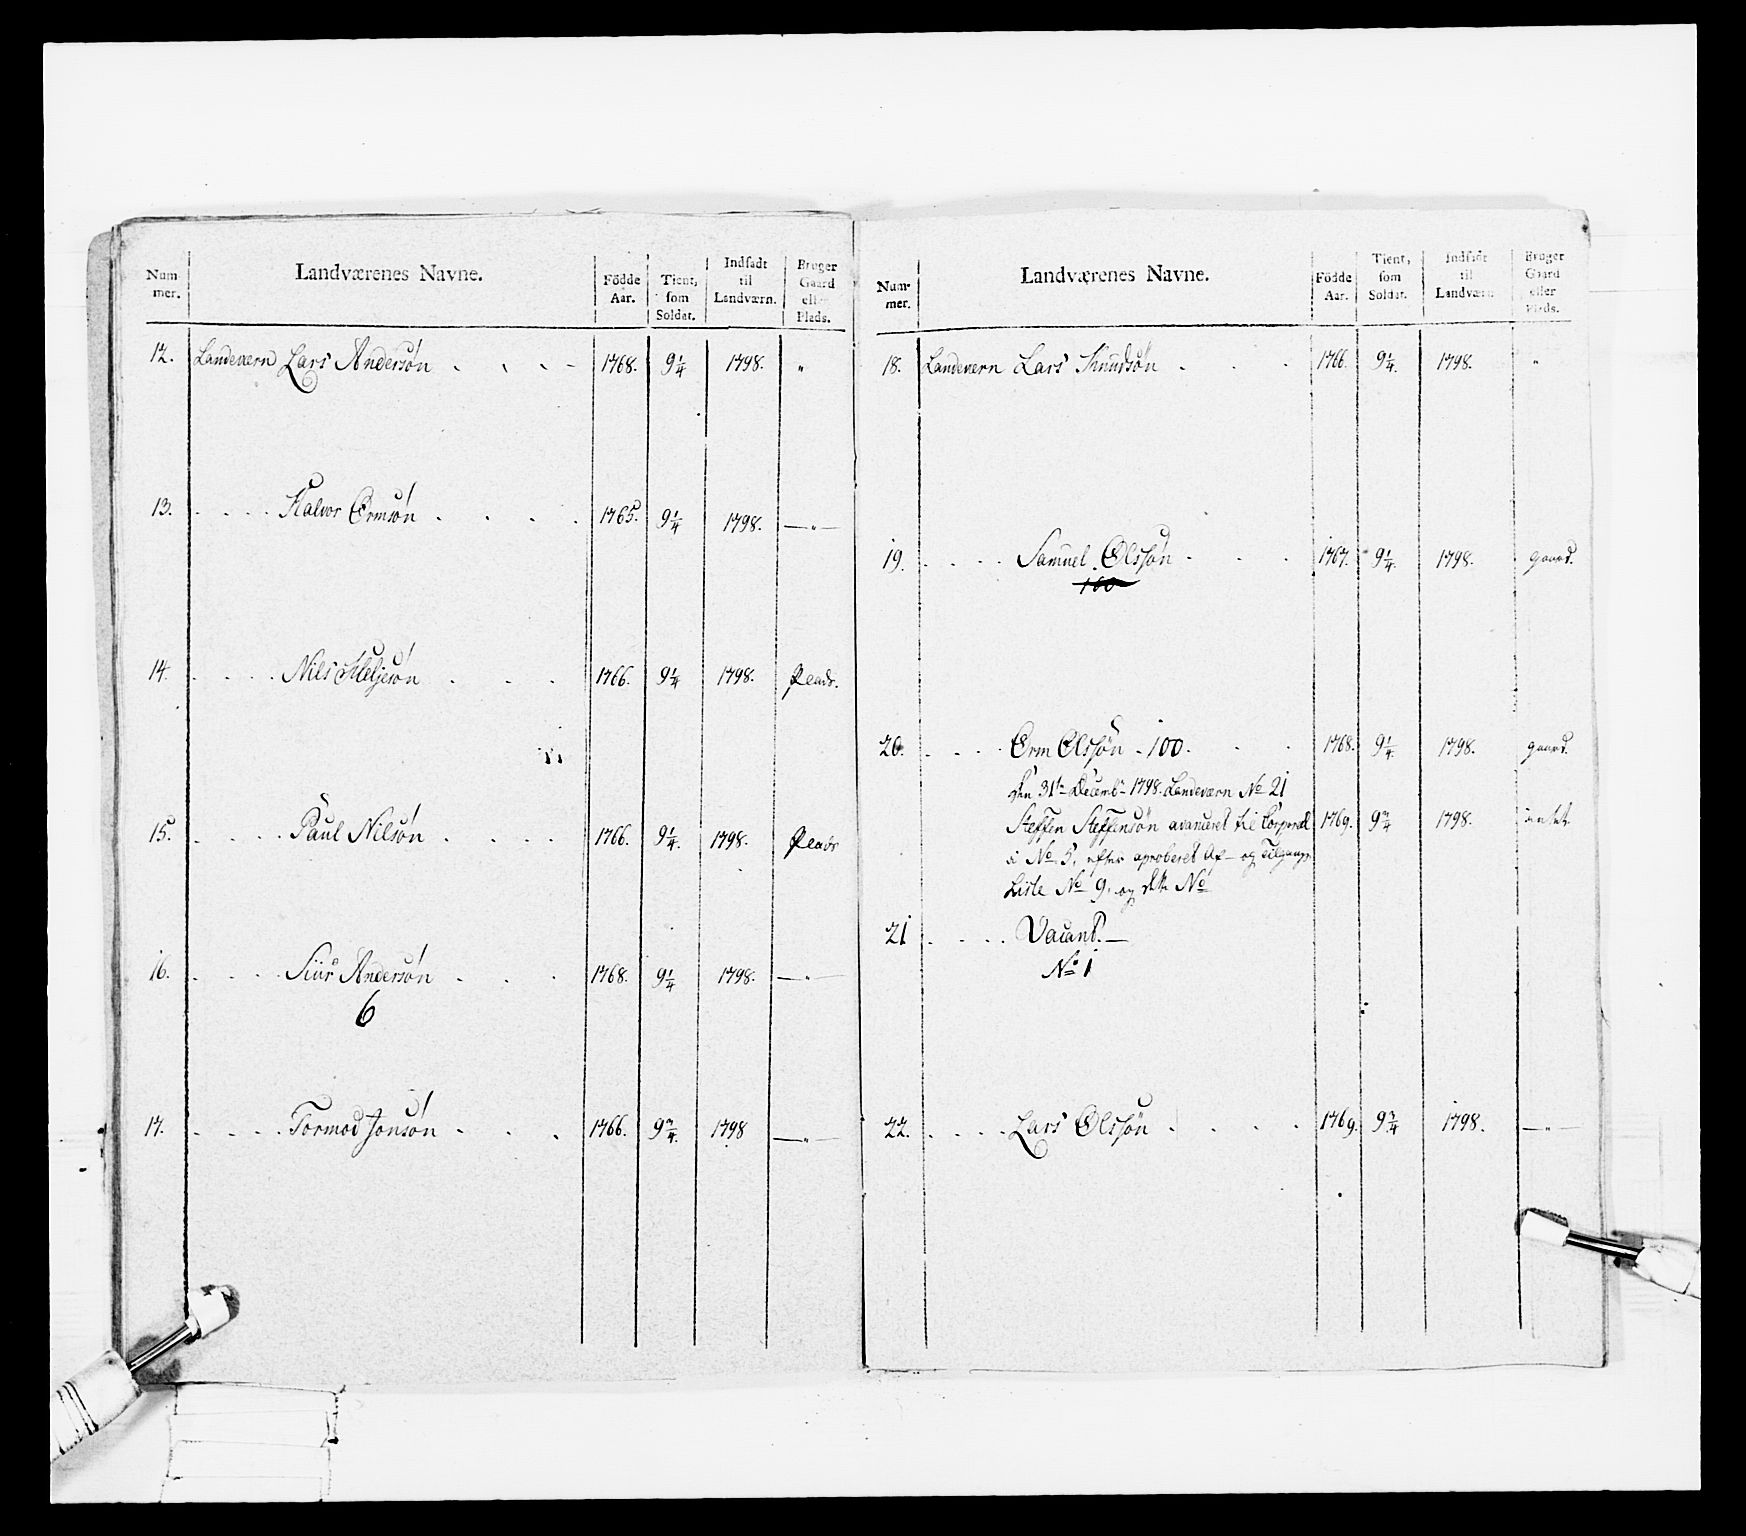 Num-
mer.
Landværenes Navne.
Födde
Aar.
Tient,
som
Soldat.
Indsadt
til
Landværn.
Bruger
Gaard
eller
Plads.
12. Landevern Lars Andersøn . . . - 1768. 9 1/4 1798. "
13. . . . . Halvor Ermsøn . . . . 1765. 9 1/4 1798. —"—
14. . . . . Nils Heljesøn . . . 1766. 9 1/4 1798. Plads.
15. . . . . Paul Nilsøn . . . . 1766. 9 1/4. 1798. Plads
16. . . . . Siur Andersøn . . . 1768. 9 1/4 1798. —"—
6
17. . . . . Tormod Jonsøn . . . 1766. 9 3/4. 1798 —"—
Num-
mer.
Landværenes Navne.
Födde
Aar.
Tient,
som
Soldat.
Indsadt
til
Landværn.
Bruger
Gaard
eller
Plads.
18. Landevern Lars Knudsøn . . . 1766. 9 1/4. 1798. "
19. . . . . Samuel Olssøn . . . 1767. 9 1/4. 1798. gaard.
100
20. . . . . Erm Olssøn - 100. . . 1768. 9 1/4. 1798. gaard.
Den 31te Decembr 1798. Landeværn No 21
Steffen Steffensøn avanceret til Corporal 1769. 9 3/4 1798. intet
i No 5, efter aproberet Af- og Tilgangs
Liste No 9, og dette No
21 . . . . Vacant. —
No 1
22. . . . . Lars Olssøn . . . . 1769. 9 3/4 1798. —"—